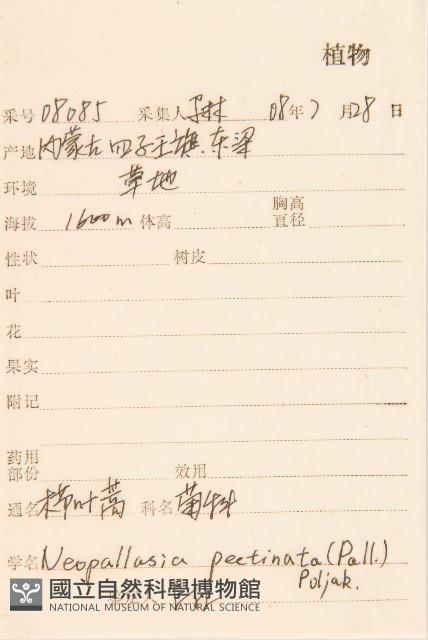 植物
采号 08085 采集人 08年7月28日
产地 内蒙古四子王旗.东梁
环境 草地
海拔 1600m 体高 胸高直径
性状 树皮
叶
花
果实
附记
药用部份 效用
通名 栉叶蒿 科名 菊科
学名 Neopallasia pectinata (Pall.)
Poljak.
國立自然科學博物館
NATIONAL MUSEUM OF NATURAL SCIENCE